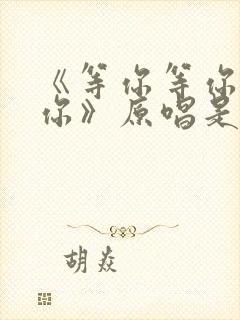 《等你等你
你》原唱是
胡焱